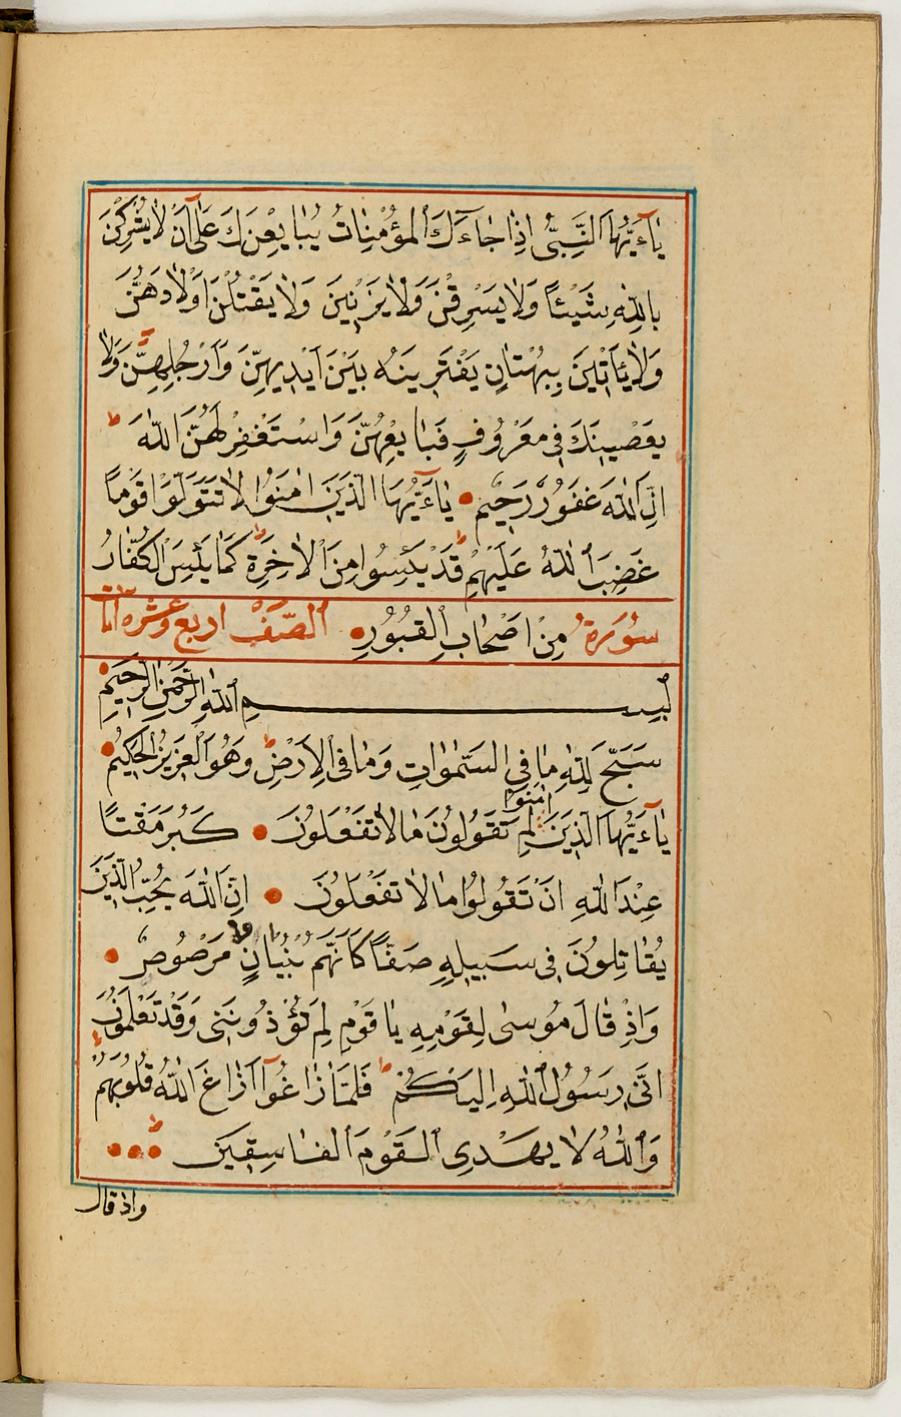 يٰٓاَيُّهَا النَّبِيُّ اِذَا جَاءَكَ الْمُؤْمِنَاتُ يُبَايِعْنَكَ عَلٰٓى اَنْ لَا يُشْرِكْنَ
بِاللّٰهِ شَيْئًا وَلَا يَسْرِقْنَ وَلَا يَزْنِينَ وَلَا يَقْتُلْنَ اَوْلَادَهُنَّ
وَلَا يَأْتِينَ بِبُهْتَانٍ يَفْتَرِينَهُ بَيْنَ اَيْدِيهِنَّ وَاَرْجُلِهِنَّ وَلَا
يَعْصِينَكَ فِي مَعْرُوفٍ فَبَايِعْهُنَّ وَاسْتَغْفِرْ لَهُنَّ اللّٰهَ ط
اِنَّ اللّٰهَ غَفُورٌ رَحِيمٌ يٰٓاَيُّهَا الَّذِينَ اٰمَنُوا لَا تَتَوَلَّوْا قَوْمًا
غَضِبَ اللّٰهُ عَلَيْهِمْ ط قَدْ يَئِسُوا مِنَ الْاٰخِرَةِ ط كَمَا يَئِسَ الْكُفَّارُ
سُورَةُ مِنْ اَصْحَابِ الْقُبُورِ الصَّفِّ اربع وعشرة اٰيات
بِسْمِ اللّٰهِ الرَّحْمٰنِ الرَّحِيمِ
سَبَّحَ لِلّٰهِ مَا فِي السَّمٰوَاتِ وَمَا فِي الْاَرْضِ ط وَهُوَ الْعَزِيزُ الْحَكِيمُ
يٰٓاَيُّهَا الَّذِينَ اٰمَنُوا لِمَ تَقُولُونَ مَا لَا تَفْعَلُونَ كَبُرَ مَقْتًا
عِنْدَ اللّٰهِ اَنْ تَقُولُوا مَا لَا تَفْعَلُونَ اِنَّ اللّٰهَ يُحِبُّ الَّذِينَ
يُقَاتِلُونَ فِي سَبِيلِهِ صَفًّا كَاَنَّهُمْ بُنْيَانٌ مَرْصُوصٌ
وَاِذْ قَالَ مُوسٰى لِقَوْمِهِ يَا قَوْمِ لِمَ تُؤْذُونَنِي وَقَدْ تَعْلَمُونَ
اَنِّي رَسُولُ اللّٰهِ اِلَيْكُمْ ط فَلَمَّا زَاغُوٓا اَزَاغَ اللّٰهُ قُلُوبَهُمْ ط
وَاللّٰهُ لَا يَهْدِي الْقَوْمَ الْفَاسِقِينَ
واذ قال